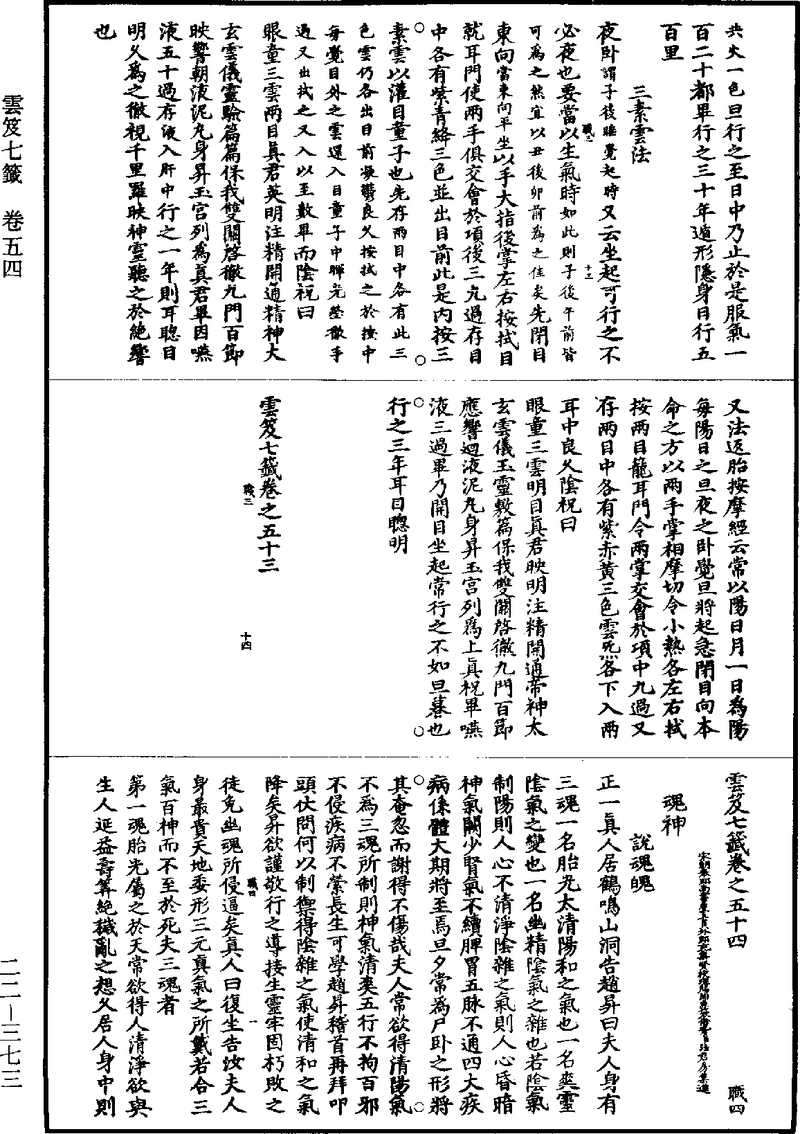 雲笈七籤 卷五四
共火一色旦行之至日中乃止於是服氣一
百二十都畢行之三十年遁形隱身日行五
百里
三素雲法
夜卧謂子後睡覺起時又云坐起可行之不
必夜也要當以生氣時如此則子後午前皆
可為之然宜以丑後卯前為之佳矣先閉目
東向當東向平坐以手大指後掌左右按拭目
就耳門使兩手俱交會於項後三九過存目
中各有紫青絳三色並出目前此是內按三
素雲以灌目童子也先存兩目中各有此三
色雲仍各出目前凝鬱良久按拭之於按中
每覺目外之雲還入目童子中暉光瑩徹手
過又出拭之又入以至數畢而陰祝曰
眼童三雲兩目真君英明注精開通精神大
玄雲儀靈驗篇篇保我雙關啓徹九門百節
映響朝液泥丸身昇玉宮列為真君畢因嚥
液五十過存液入肝中行之一年則耳聰目
明久為之徹視千里羅映神靈聽之於絕響
也
職二
十三
又法返胎按摩經云常以陽日月一日為陽
每陽日之旦夜之卧覺旦將起急閉目向本
命之方以兩手掌相摩切令小熱各左右拭
按兩目籠耳門令兩掌交會於項中九過又
存兩目中各有紫赤黃三色雲氣各下入兩
耳中良久陰祝曰
眼童三雲明目真君映明注精開通帝神太
玄雲儀玉靈敷篇保我雙關啓徹九門百節
應響迴液泥丸身昇玉宮列為上真祝畢嚥
液三過畢乃開目坐起常行之不如旦暮也
行之三年耳目聰明
雲笈七籤卷之五十三
職三
十四
雲笈七籤卷之五十四
職四
魂神
說魂魄
正一真人居鶴鳴山洞告趙昇曰夫人身有
三魂一名胎光太清陽和之氣也一名爽靈
陰氣之變也一名幽精陰氣之雜也若陰氣
制陽則人心不清淨陰雜之氣則人心昏暗
神氣闕少腎氣不續脾胃五脉不通四大疾
病係體大期將至焉旦夕常為尸卧之形將
其奄忽而謝得不傷哉夫人常欲得清陽氣
不為三魂所制則神氣清爽五行不拘百邪
不侵疾病不縈長生可學趙昇稽首再拜叩
頭伏問何以制禦得陰雜之氣使清和之氣
降矣昇欲謹敬行之導接生靈牢固朽敗之
徒免幽魂所侵逼矣真人曰復坐告汝夫人
身最貴天地委形三元真氣之所戴若合三
氣百神而不至於死夫三魂者
第一魂胎光屬之於天常欲得人清淨欲與
生人延益壽筭絕穢亂之想久居人身中則
職四
一
二二—三七三